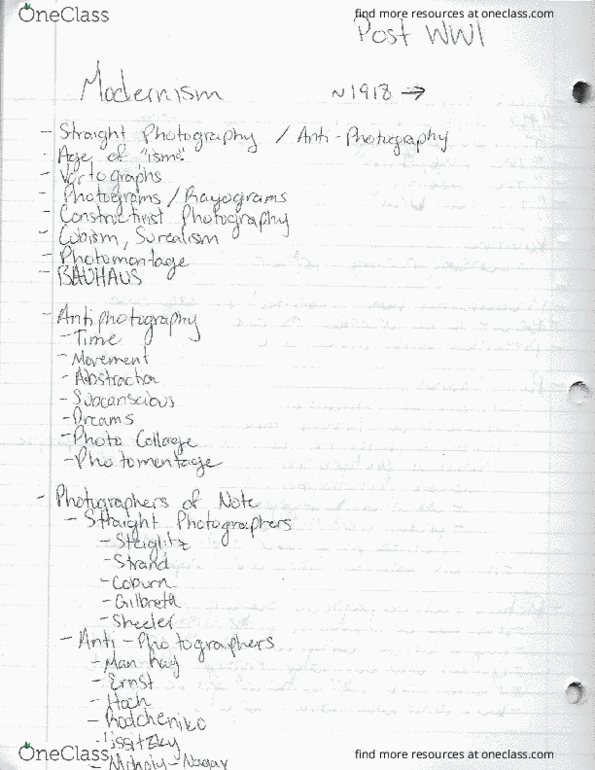 OneClass
find more resources at oneclass.com
Post WWI
Modernism ~1918 →
- Straight Photography / Anti-Photography
- Age of "isms"
- Vortographs
- Photograms / Rayograms
- Constructivist Photography
- Cubism, Surealism
- Photomontage
- BAUHAUS
- Antiphotography
- Time
- Movement
- Abstraction
- Subconscious
- Dreams
- Photo Collage
- Photomentage
- Photographers of Note
- Straight Photographers
- Steiglitz
- Strand
- Coburn
- Gilbreth
- Sheeler
- Anti-Photographers
- Man Ray
- Ernst
- Hoch
- Rodchenko
- Lissitzky
- Moholy-Nagy
OneClass
find more resources at oneclass.com